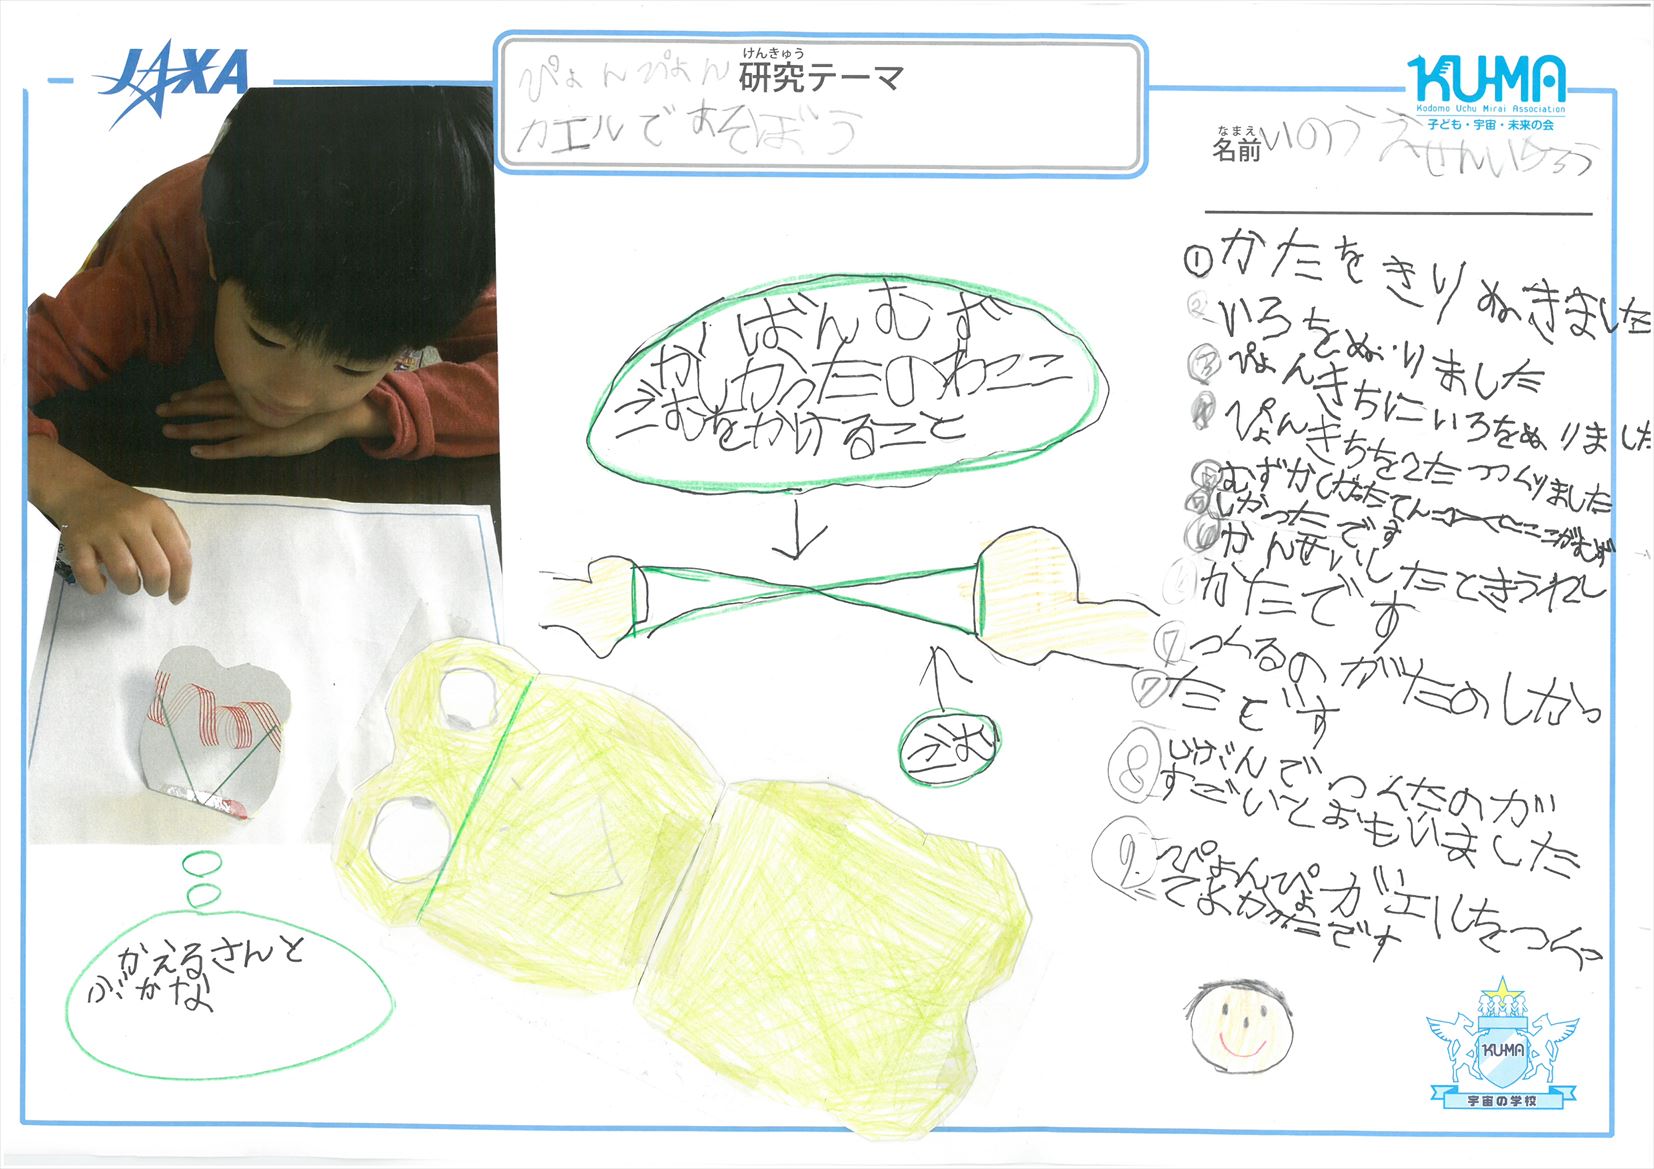 JAXA
けんきゅう
ぴょんぴょん 研究テーマ
カエルであそぼう
KU-MA
Kodomo Uchu Mirai Association
子ども・宇宙・未来の会
なまえ
名前 いのうえ
せんいちろう
① かたをきりぬきました
② いろをぬりました
③ ぴょんきちにいろをぬりました
④ ぴょんきちを2たつくりました
むずかしかったてん
ここがむず
しかったです
⑥ かんせいしたときうれし
かたです
⑦ つくるのがたのしかっ
たです
⑧ じぶんでつくたのが
すごいとおもいました
⑨ ぴょんぴょがエルをつくっ
てよかたです
いちばんむず
かしかったのわここ
ごむをかけること
ごむ
かえるさんと
ぶかな
KU-MA
宇宙の学校